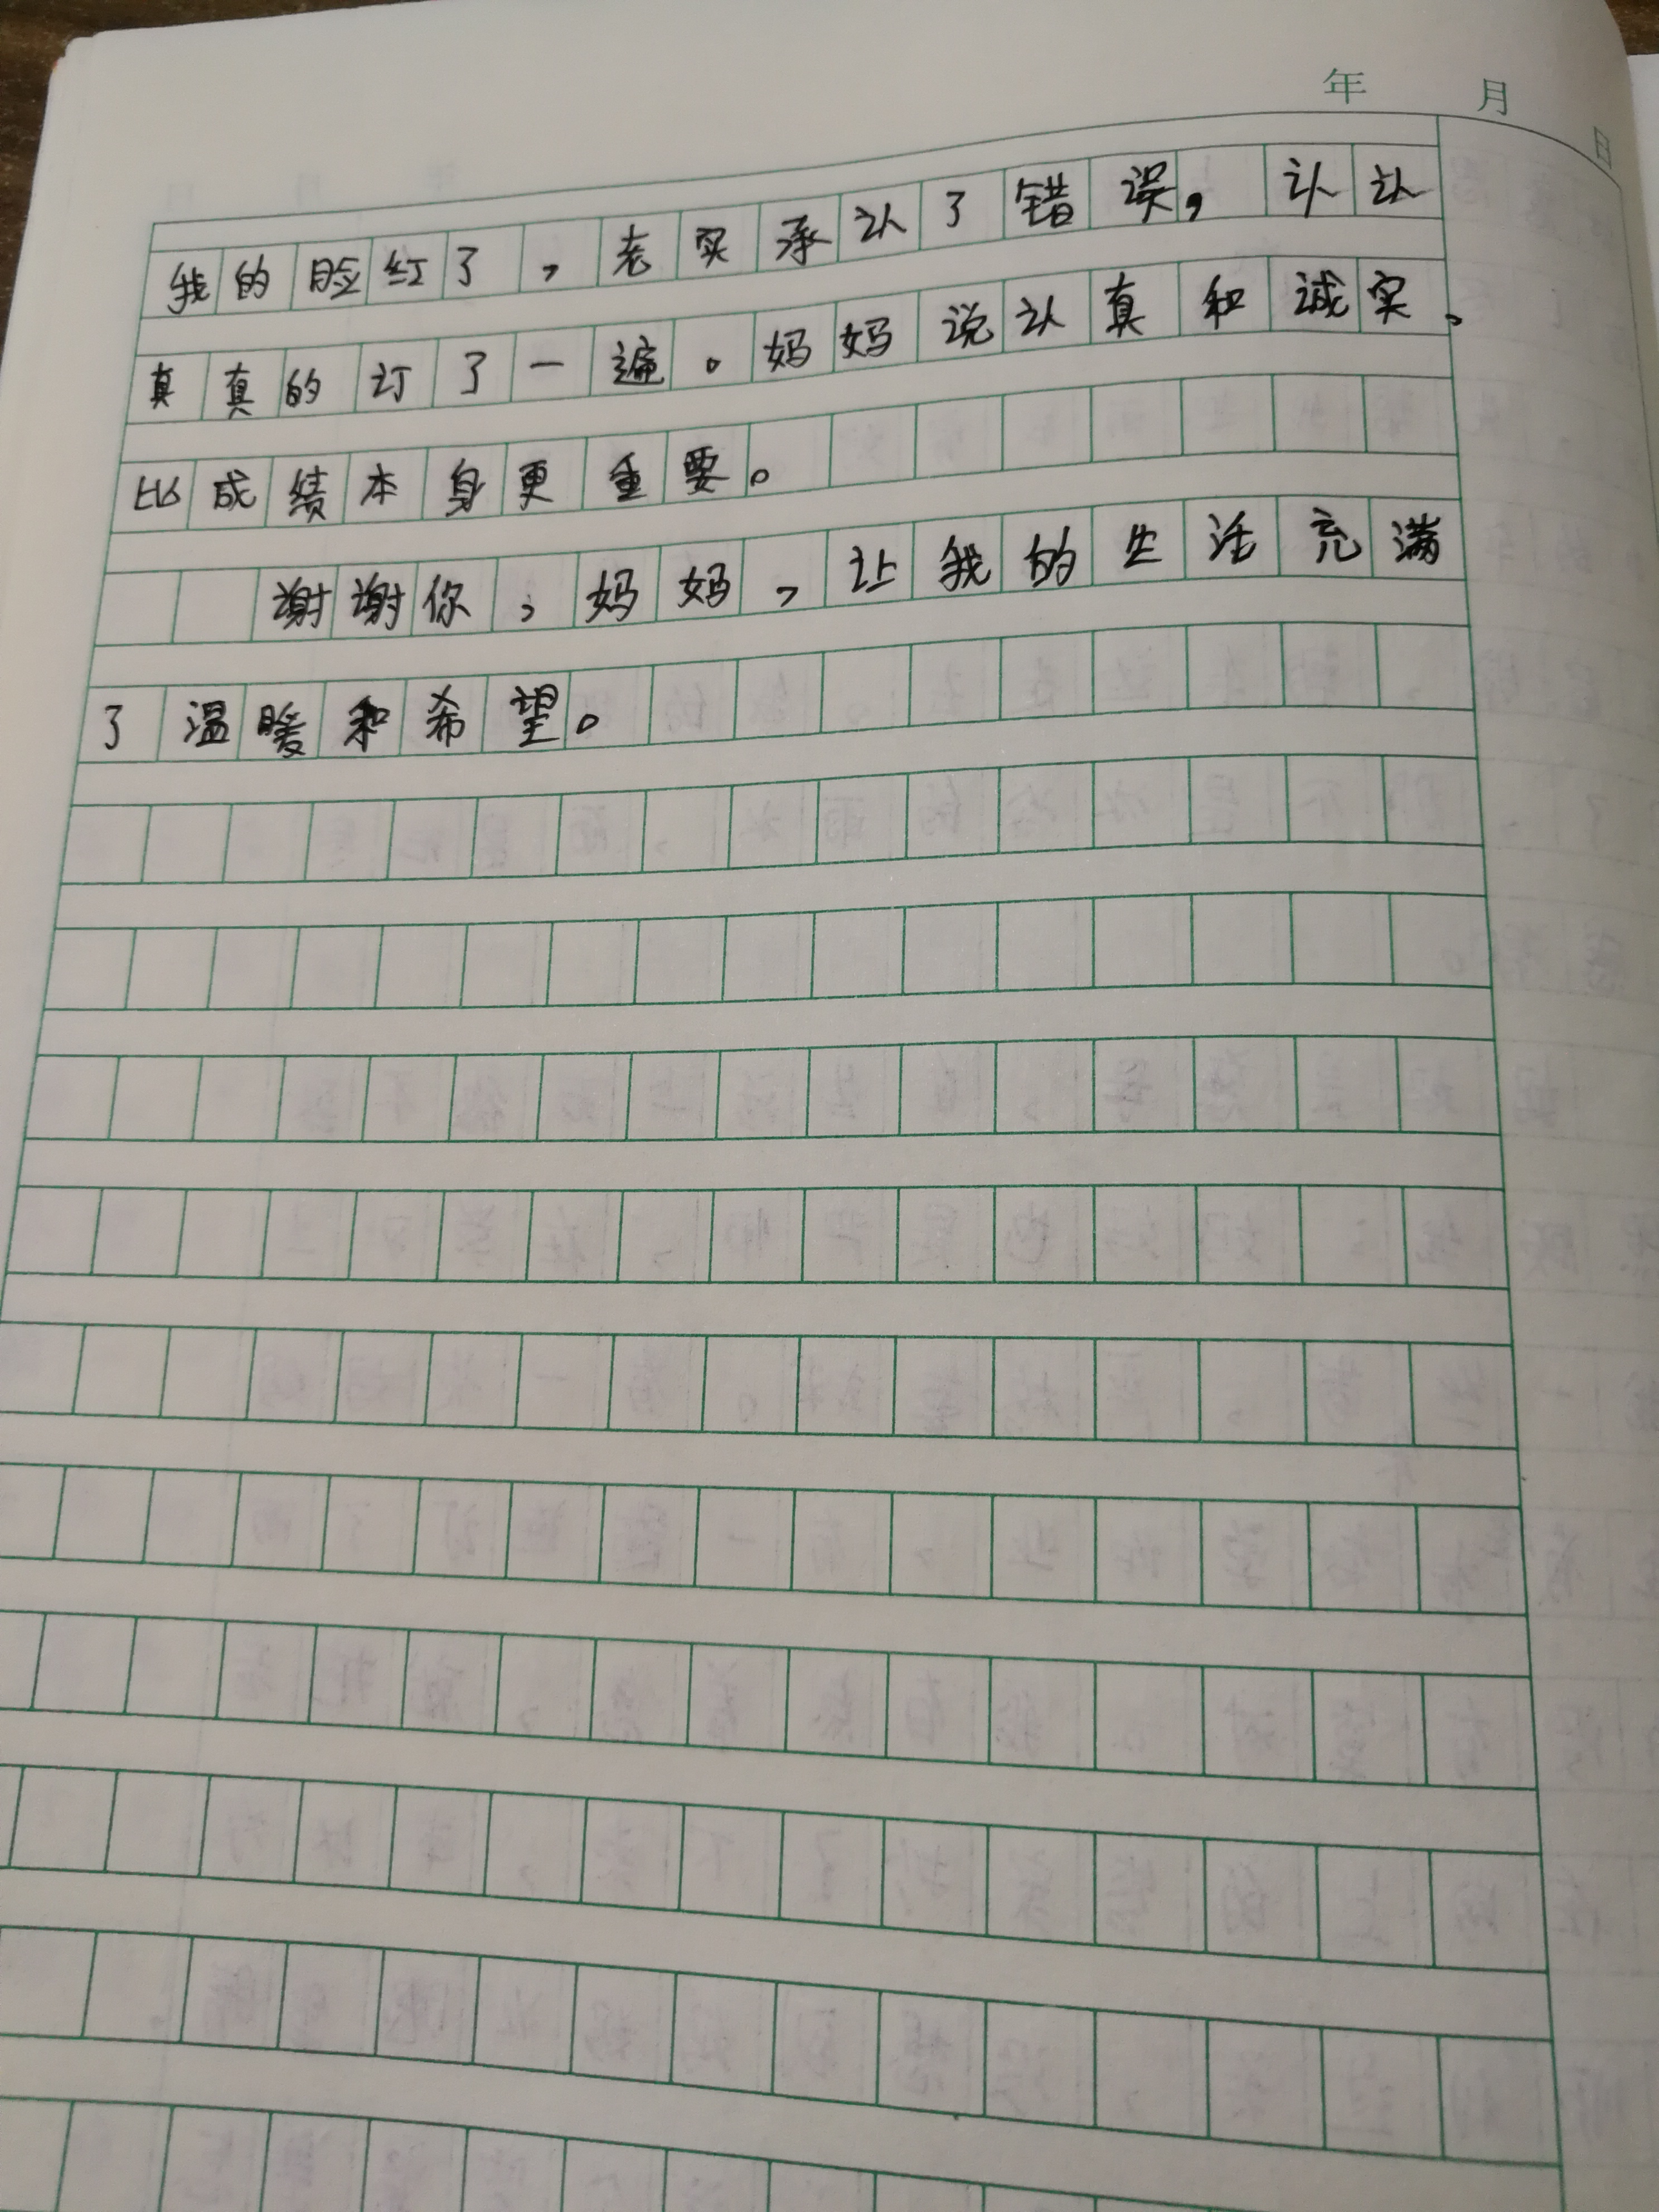 年 月 日
我的脸红了，老实承认了错误，认认
真真的订了一遍。妈妈说认真和诚实、
比成绩本身更重要。
谢谢你，妈妈，让我的生活充满
了温暖和希望。